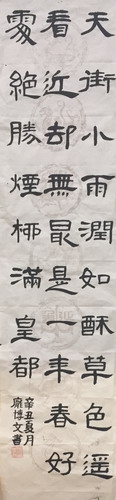 天街小雨潤如酥草色遥
看近却無最是一年春好
處絕勝煙柳滿皇都
辛丑夏月
康博文書